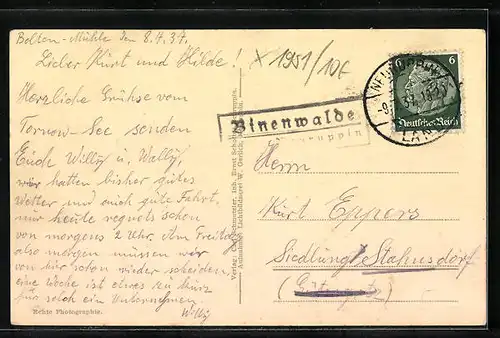 Bolten-Mühle den 8.4.37.
Lieber Kurt und Hilde!
Herzliche Grüße vom
Tornow-See senden
Euch Willy u. Wally,
wir hatten bisher gutes
Wetter und auch gute Fahrt,
nur heute regnets schon
von morgens 2 Uhr. Am Freitag
also morgen müssen wir
von hier schon wieder scheiden
eine Woche ist etwas zu kurz
für solch ein Unternehmen
Willy
Echte Photographie.
X 1951/10E
6
Deutsches Reich
LAND
Binenwalde
Herrn
Kurt Eppers
Siedlung Stahnsdorf